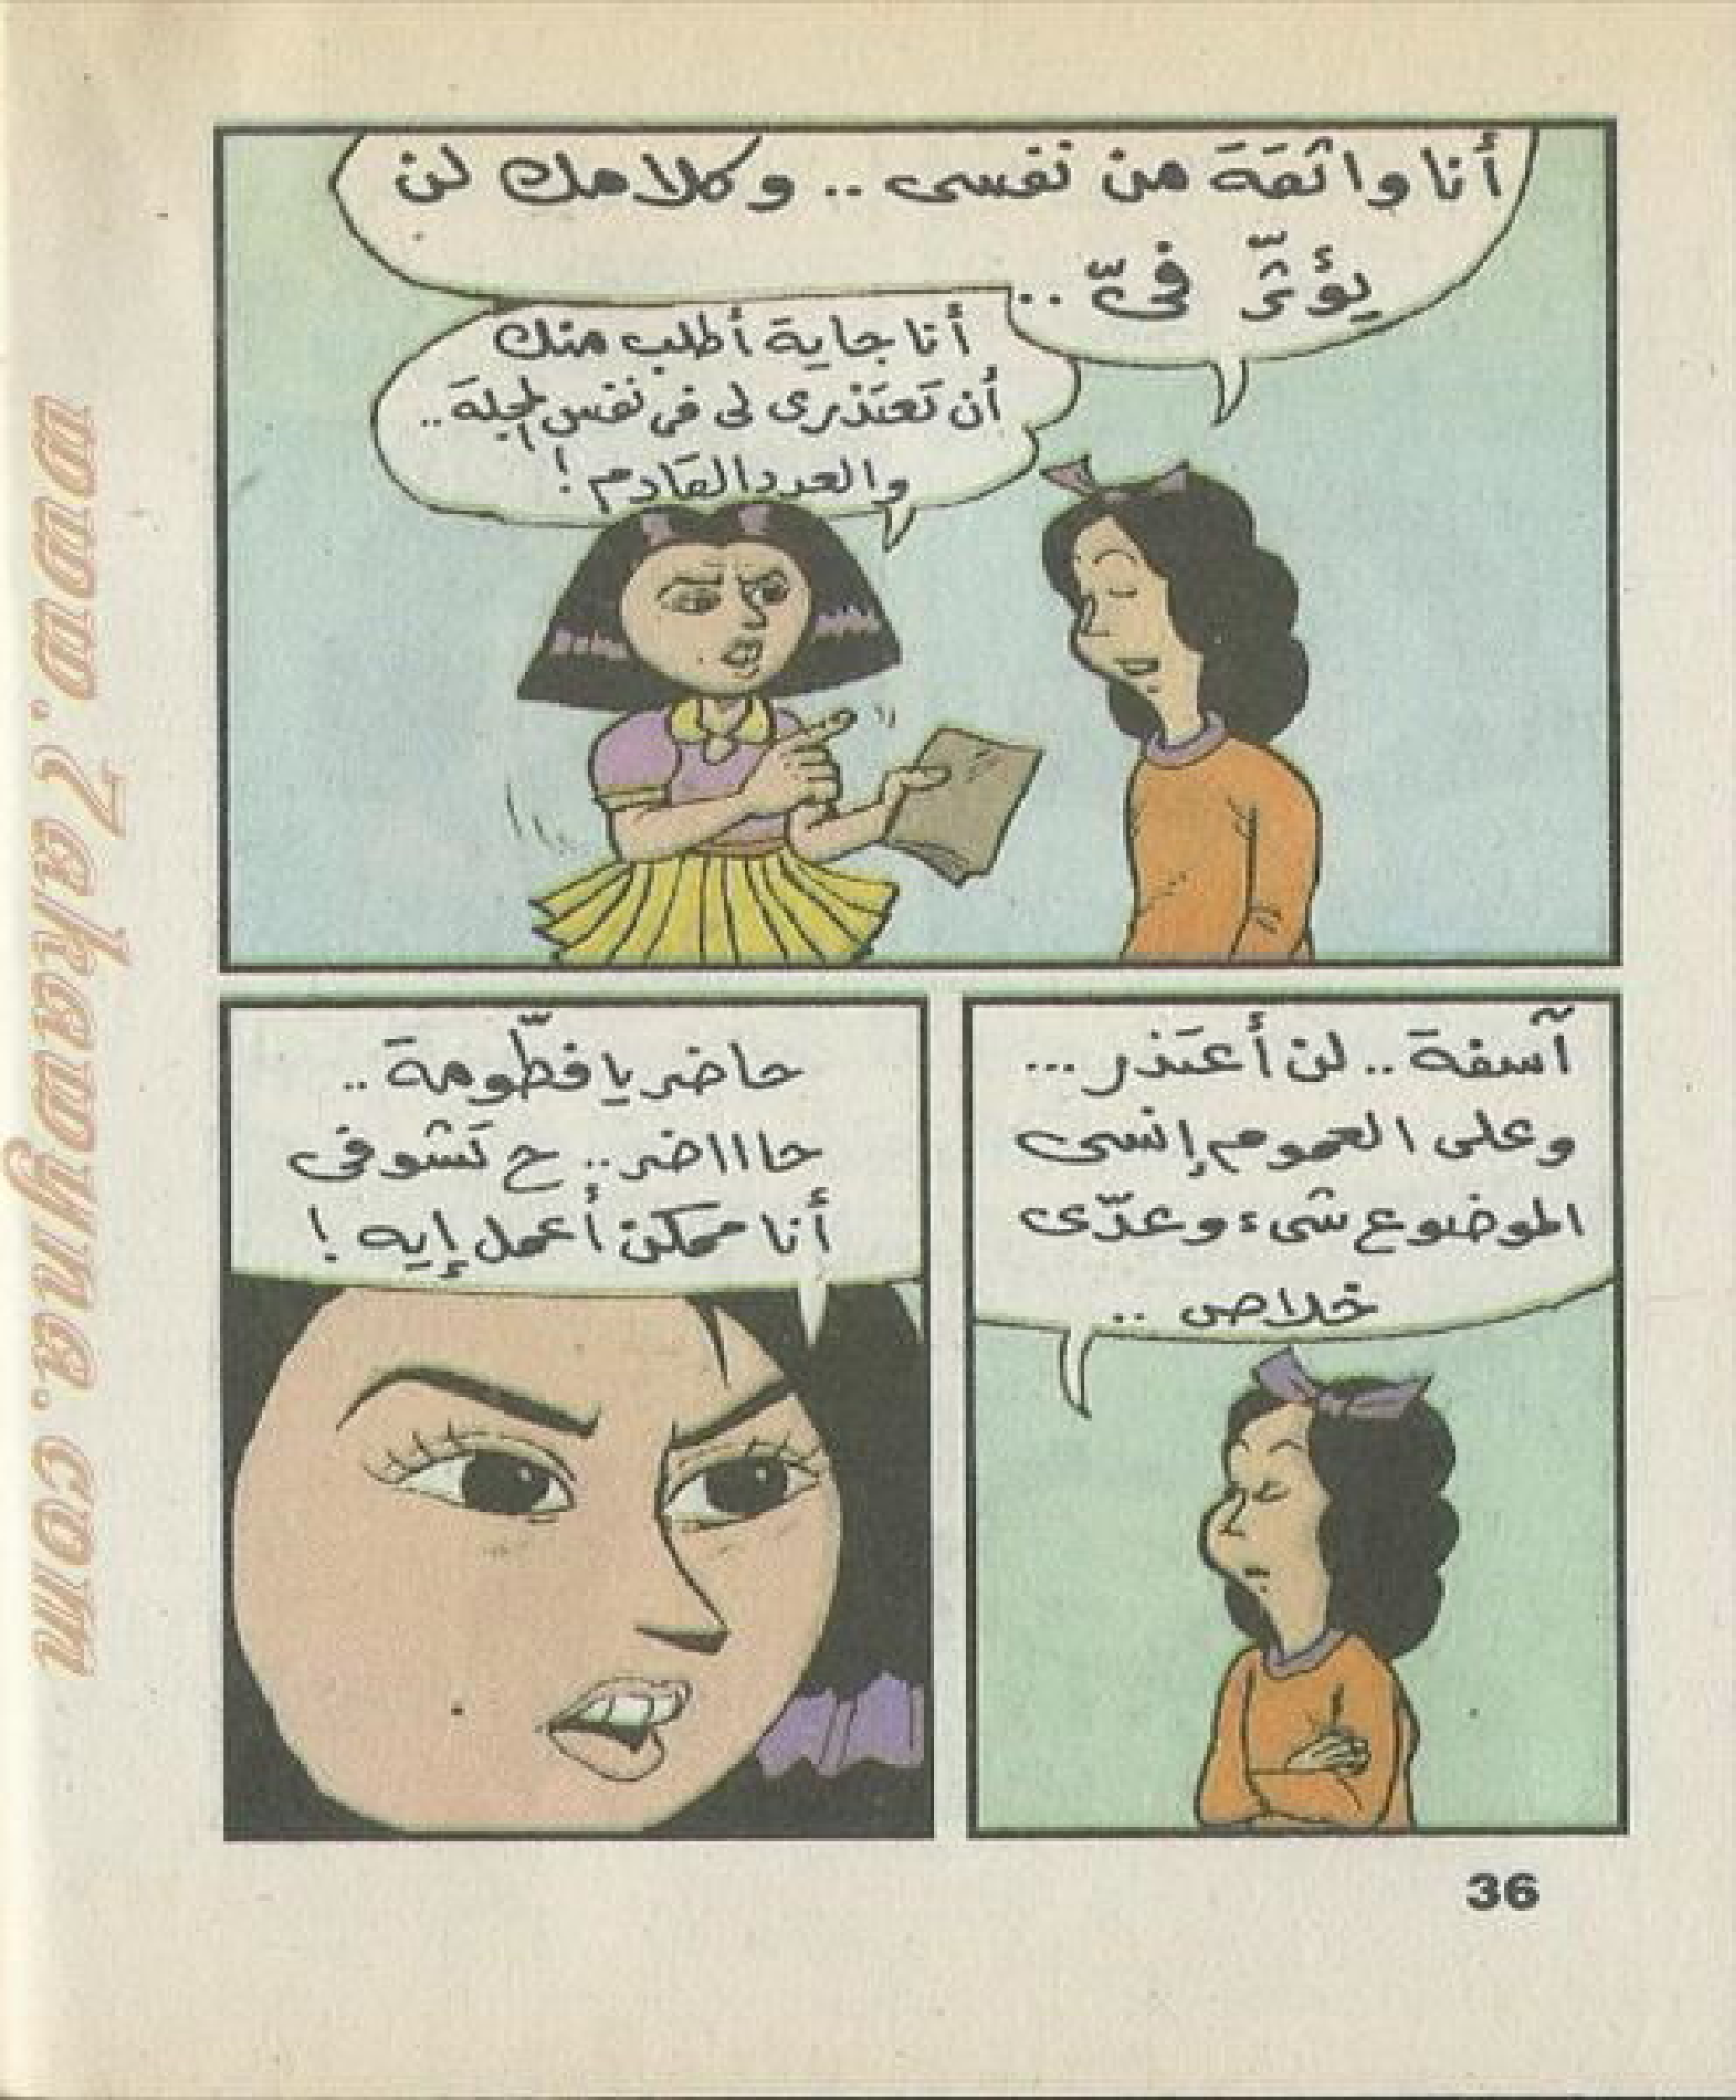 أنا واثقة من نفسى .. وكلامك لن
يؤثّر فىّ ..
أنا جاية أطلب منك
أن تعتذرى لى فى نفس المجلة ..
والعدد القادم !
آسفة .. لن أعتذر ...
وعلى العموم إنسى
الموضوع شىء وعدّى
خلاص ..
حاضر يا فطّومة ..
حاااضر .. ح تشوفى
أنا ممكن أعمل إيه !
36
www.7ekawyna.com